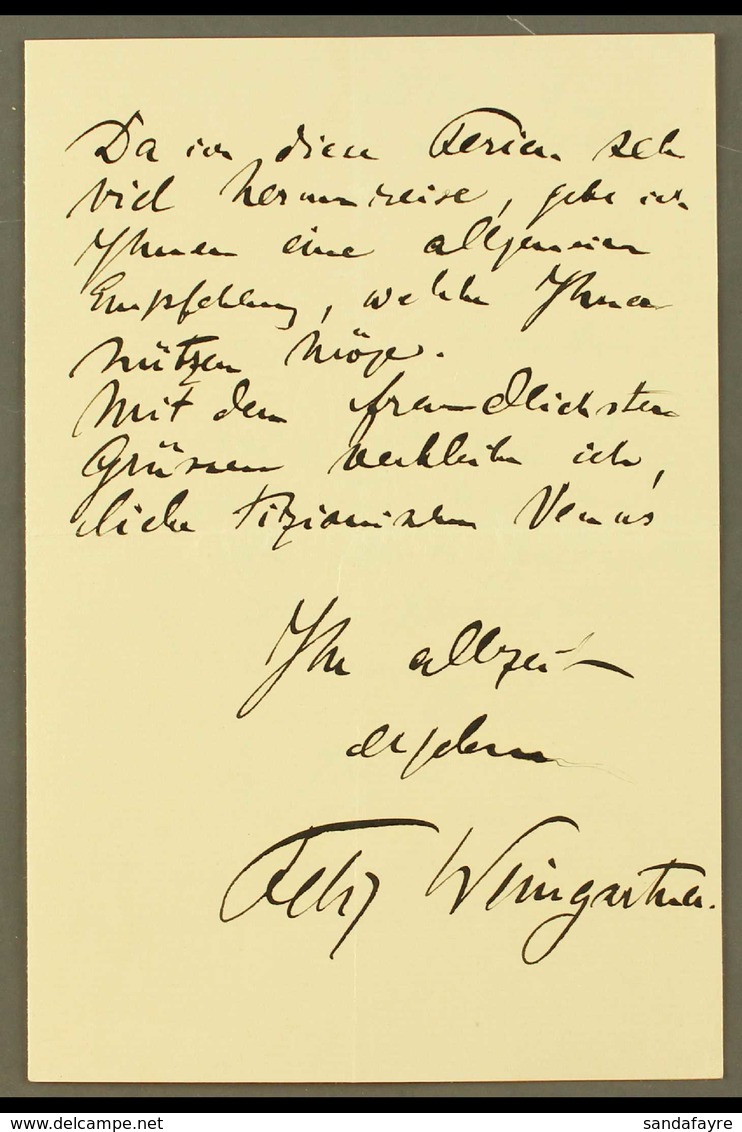 Da ich diese Ferien sehr
viel herumreise, gebe ich
Ihnen eine allgemeine
Empfehlung, welche Ihnen
nützen möge.
Mit den freundlichsten
Grüssen verbleibe ich,
liebe Tizianischen Venus
Ihr allzeit
ergebener
Felix Weingartner.
www.delcampe.net
sandafayre